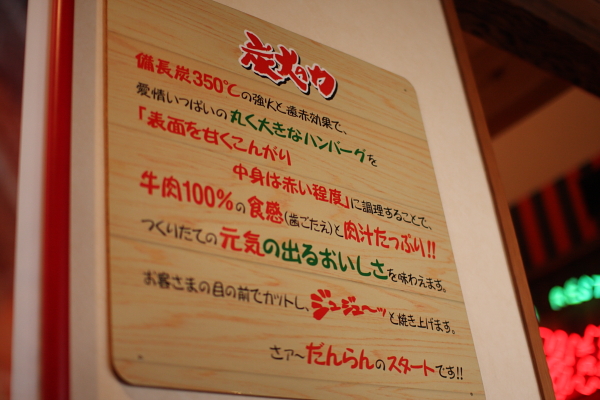 炭火の力
備長炭350℃の強火と遠赤効果で、
愛情いっぱいの丸く大きなハンバーグを
「表面を甘くこんがり
中身は赤い程度」に調理することで、
牛肉100%の食感(歯ごたえ)と肉汁たっぷり!!
つくりたての元気の出るおいしさを味わえます。
お客さまの目の前でカットし、ジュジュ〜ッと焼き上げます。
さァ〜だんらんのスタートです!!